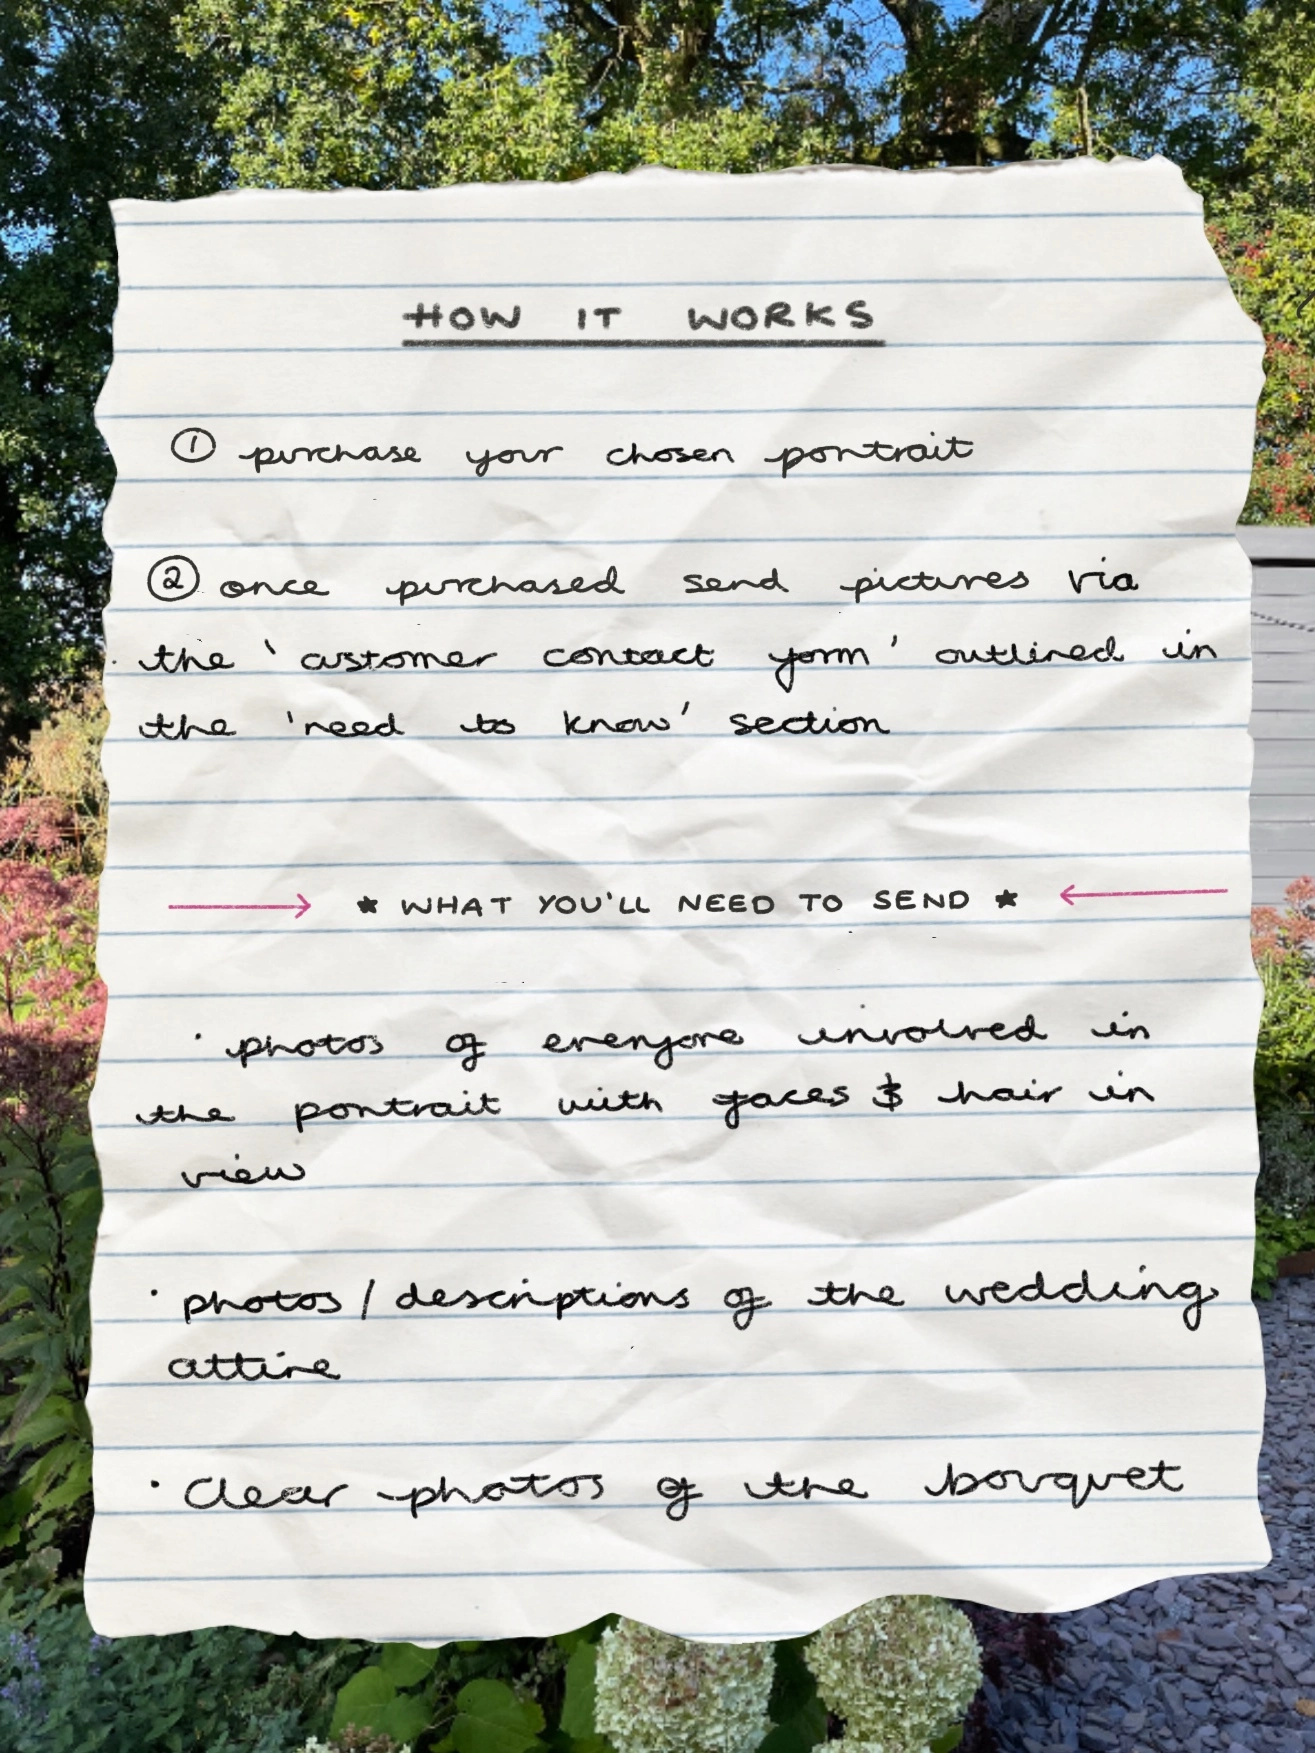 HOW IT WORKS
① purchase your chosen portrait
② once purchased send pictures via
the 'customer contact form' outlined in
the 'need to know' section
★ WHAT YOU'LL NEED TO SEND ★
· photos of everyone involved in
the portrait with faces & hair in
view
· photos / descriptions of the wedding
attire
· Clear photos of the bouquet